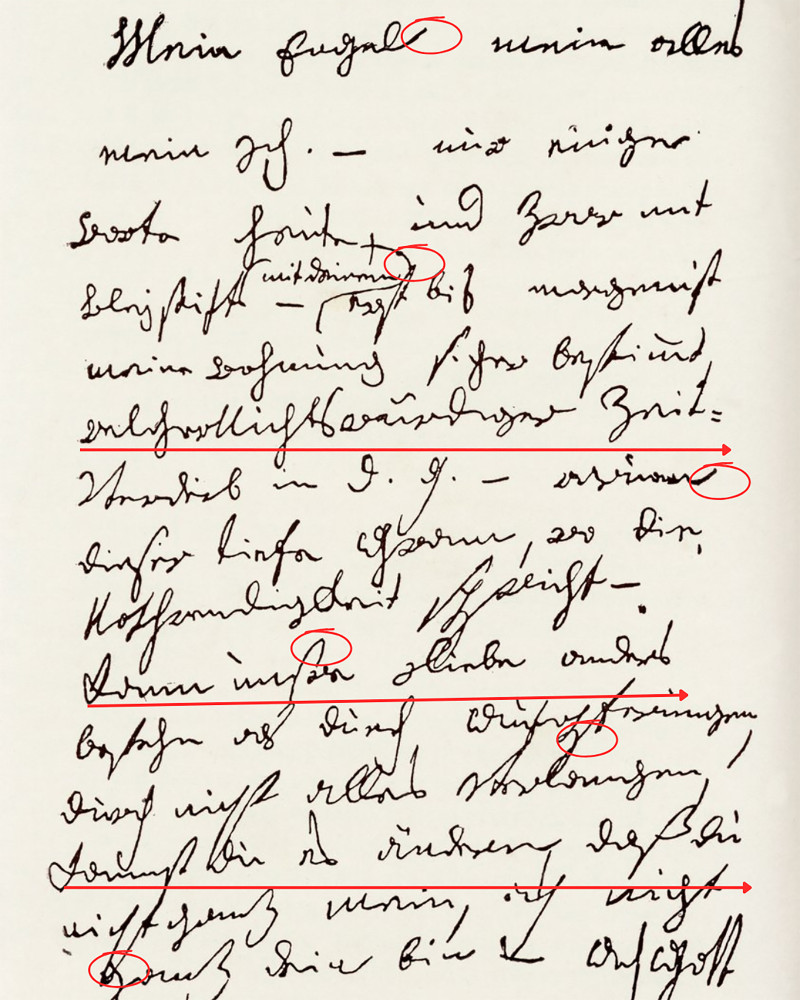 Mein Engel mein alles
mein Ich. — nur einige
worte heute, und zwar mit
Bleystift — mit deinem erst bis morgen ist
meine wohnung sicher bestimmt,
welcher Nichtswürdiger Zeit=
Verderb in d. g. — warum
dieser tiefe Gram, wo die
Nothwendigkeit spricht —.
Kann unsre Liebe anders
bestehn als durch Aufopferungen,
durch nicht alles verlangen,
kannst du es ändern, daß du
nicht ganz mein, ich nicht
ganz dein bin — Ach Gott